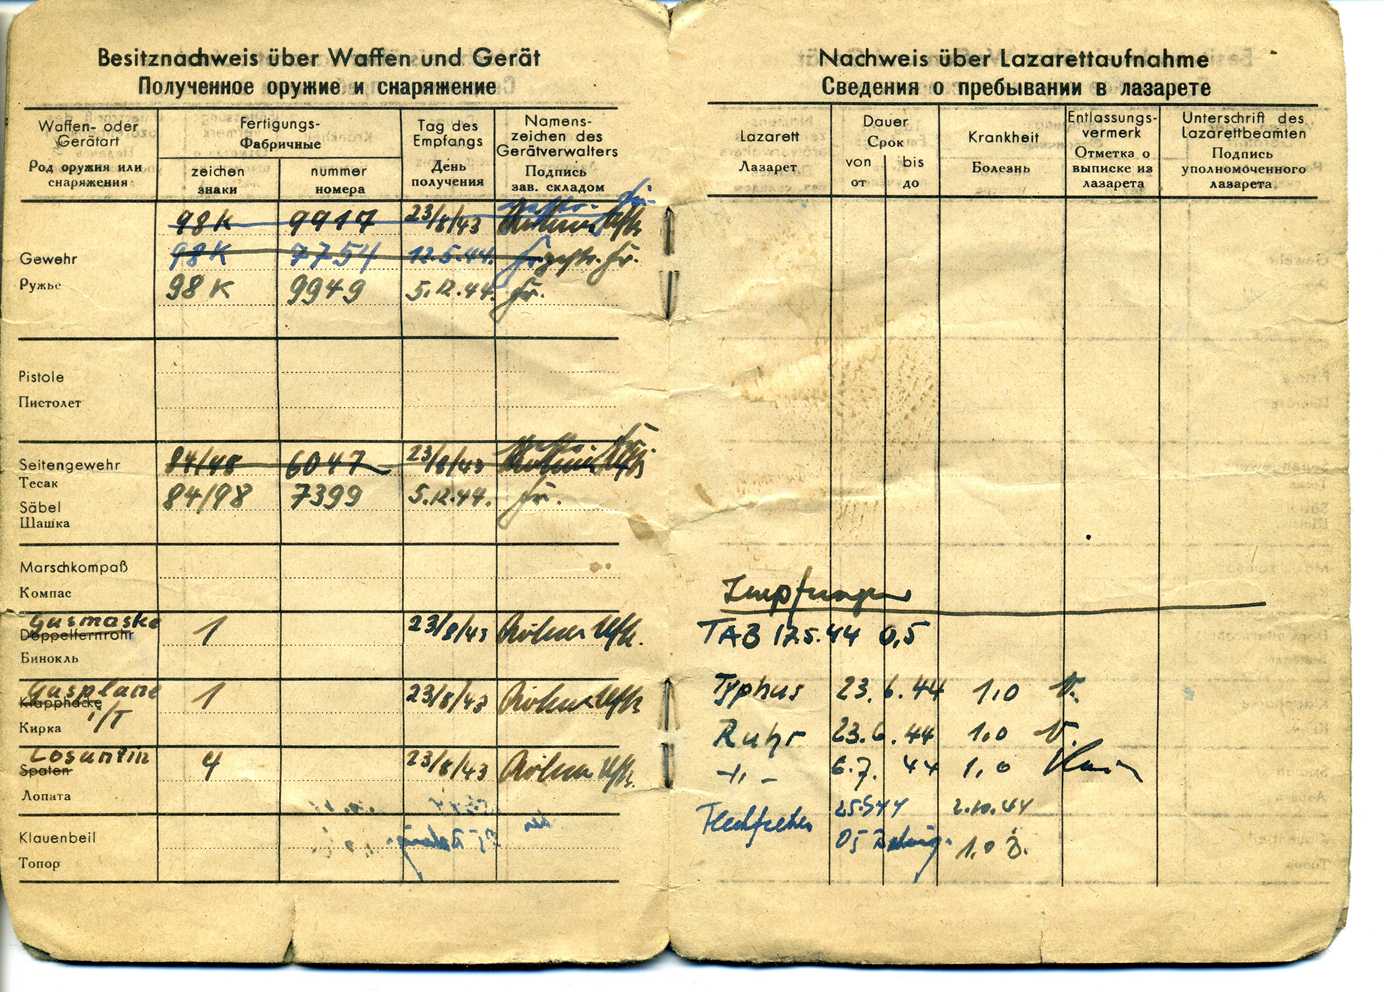 Besitznachweis über Waffen und Gerät
Полученное оружие и снаряжение
Waffen- oder Gerätart
Род оружия или снаряжения
Fertigungs-
Фабричные
zeichen
знаки
nummer
номера
Tag des Empfangs
День получения
Namens-
zeichen des
Gerätverwalters
Подпись
зав. складом
98K 9917 23/8/43
Gewehr 98K 7754 12.5.44.
Ружье 98K 9949 5.12.44.
Pistole
Пистолет
Seitengewehr 84/98 6047 23/8/43
Тесак
Säbel 84/98 7399 5.12.44.
Шашка
Marschkompaß
Компас
Gasmaske
Doppelfernrohr 1 23/8/43 Uffz.
Бинокль
Gasplane
Klapphacke 1 23/8/43 Uffz.
i/T
Кирка
Losantin
Spaten 4 23/8/43 Uffz.
Лопата
Klauenbeil
Топор
Nachweis über Lazarettaufnahme
Сведения о пребывании в лазарете
Lazarett
Лазарет
Dauer
Срок
von
от
bis
до
Krankheit
Болезнь
Entlassungs-
vermerk
Отметка о
выписке из
лазарета
Unterschrift des
Lazarettbeamten
Подпись
уполномоченного
лазарета
Impfungen
TAB 12.5.44 0,5
Typhus 23.6.44 1,0
Ruhr 23.6.44 1,0
6.7.44 1,0
Fleckfieber 25.9.44 2.10.44
0,5 1,0